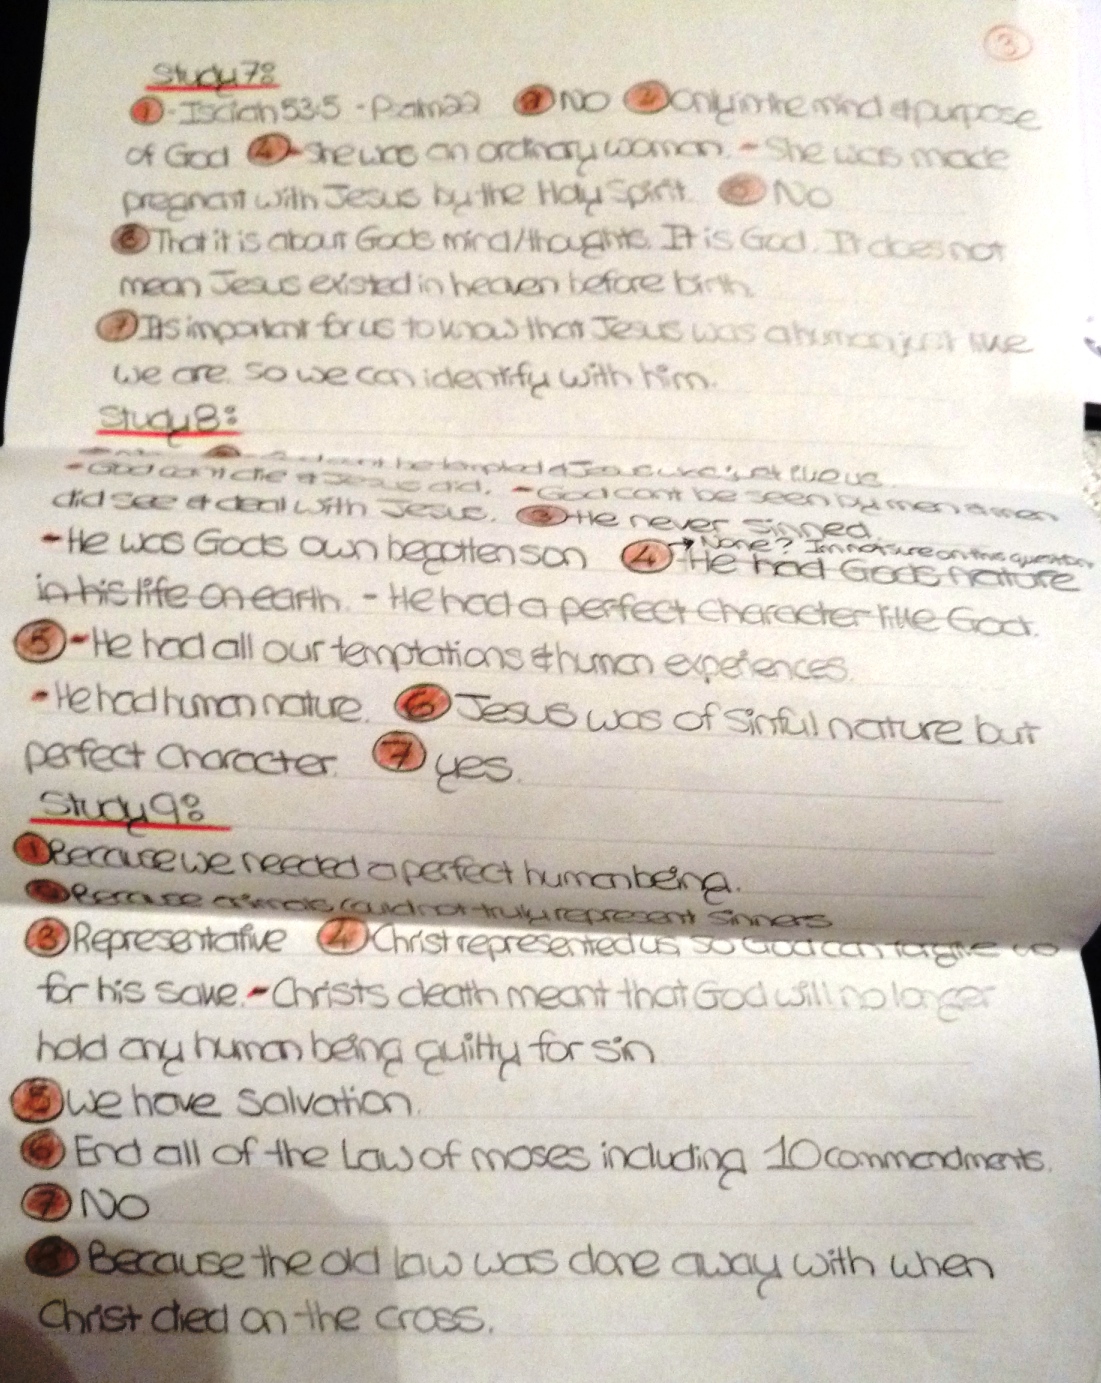 3
Study 7:
1 - Isaiah 53:5 - Psalm 22 2 No 3 Only in the mind & purpose
of God 4 - She was an ordinary woman. - She was made
pregnant with Jesus by the Holy Spirit. 5 No
6 That it is about Gods mind/thoughts. It is God. It does not
mean Jesus existed in heaven before birth.
7 Its important for us to know that Jesus was a human just like
we are. So we can identify with him.
Study 8:
be tempted & Jesus was just like us.
- God can't die & Jesus did. - God cant be seen by men & men
did see & deal with Jesus. 3 - He never sinned.
- He was Gods own begotten son 4 → None? Im not sure on this question
- He had Gods nature
in his life on earth. - He had a perfect character like God.
5 - He had all our temptations & human experiences.
- He had human nature. 6 Jesus was of sinful nature but
perfect character. 7 yes.
Study 9:
1 Because we needed a perfect human being.
2 Because animals could not truly represent sinners
3 Representative 4 Christ represented us so God can forgive us
for his sake. - Christs death meant that God will no longer
hold any human being guilty for sin
5 We have salvation.
6 End all of the Law of moses including 10 commandments.
7 No
8 Because the old law was done away with when
Christ died on the cross.